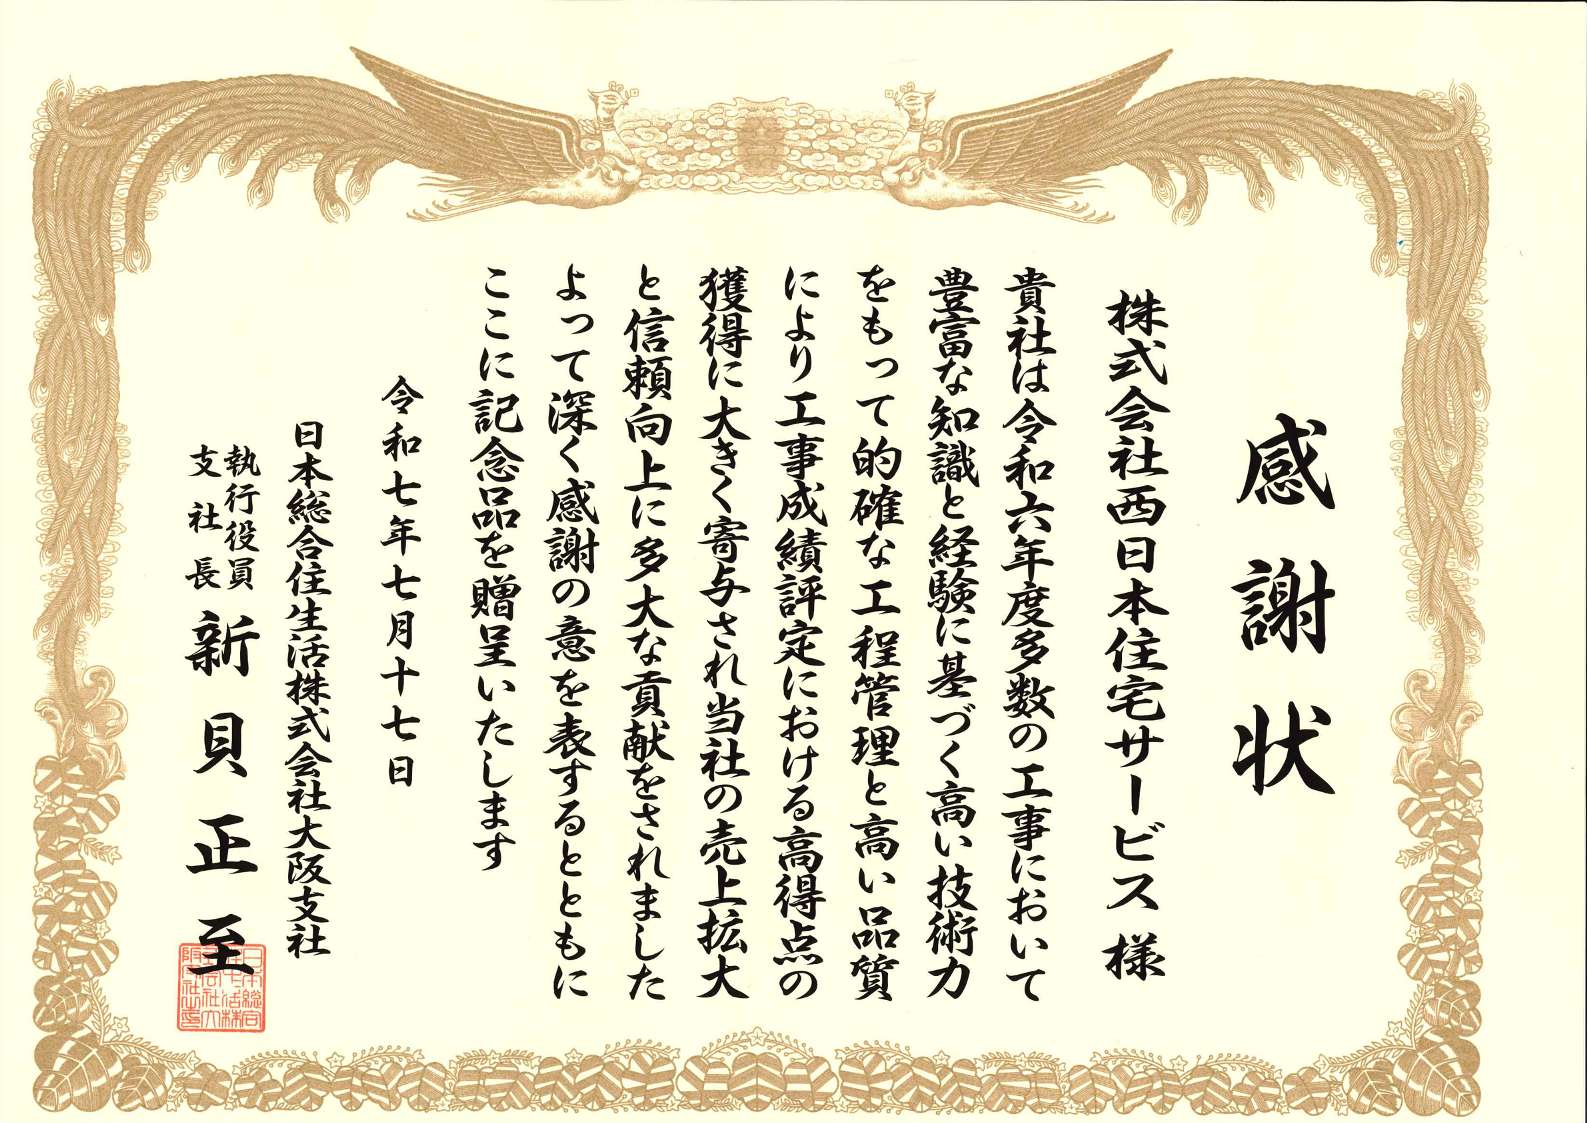 感謝状
株式会社西日本住宅サービス 様
貴社は令和六年度多数の工事において
豊富な知識と経験に基づく高い技術力
をもって的確な工程管理と高い品質
により工事成績評定における高得点の
獲得に大きく寄与され当社の売上拡大
と信頼向上に多大な貢献をされました
よって深く感謝の意を表するとともに
ここに記念品を贈呈いたします
令和七年七月十七日
日本総合住生活株式会社大阪支社
執行役員
支社長 新貝正至